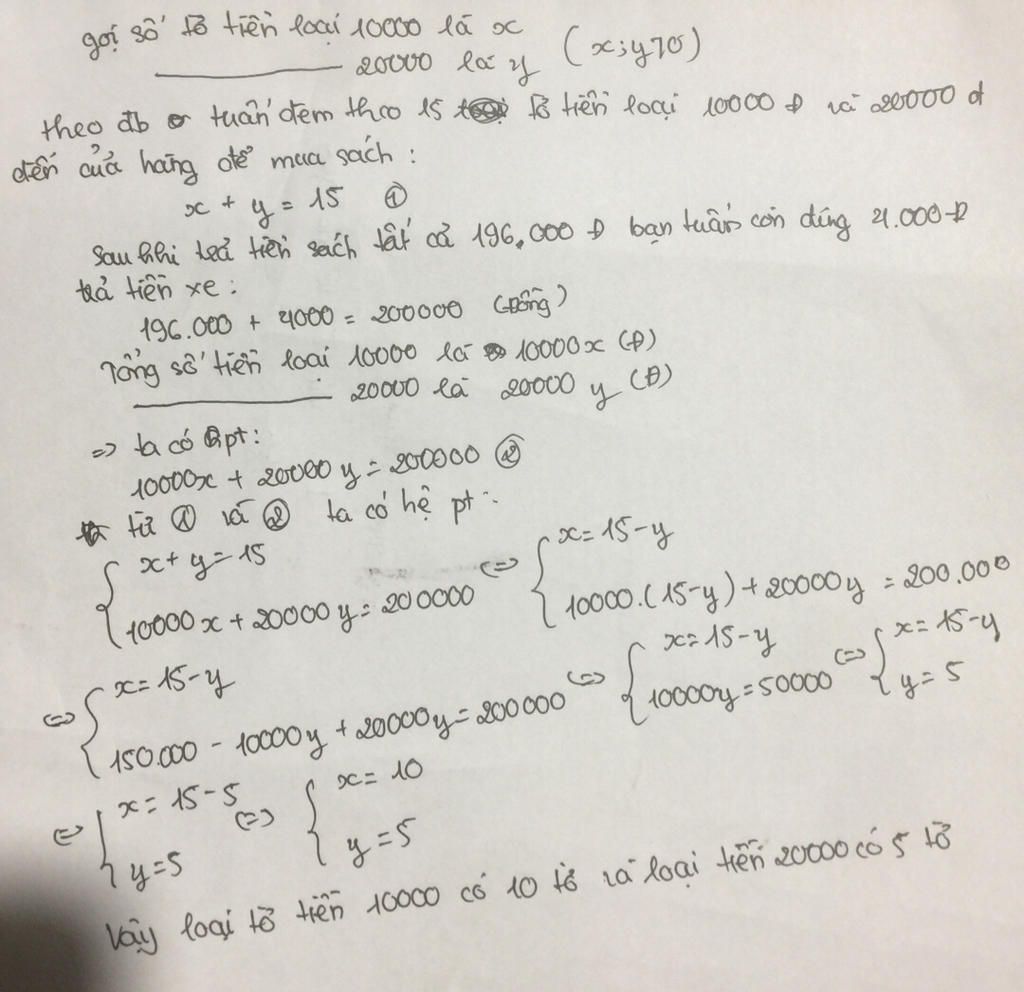 gọi số tờ tiền loại 10000 là x
——— 20000 là y (x;y>0)
theo đb tuấn đem theo 15 tờ tiền loại 10000 đ và 20000 đ
đến cửa hàng để mua sách :
x + y = 15 ①
sau khi trả tiền sách tất cả 196.000 Đ bạn tuấn còn đúng 4.000 Đ
trả tiền xe :
196.000 + 4000 = 200000 (Đồng)
Tổng số tiền loại 10000 là 10000x (Đ)
——— 20000 là 20000 y (Đ)
=> ta có pt :
10000x + 20000 y = 200000 ②
từ ① và ② ta có hệ pt :
{ x + y = 15
10000 x + 20000 y = 200000 <=> { x = 15 - y
10000.(15-y) + 20000y = 200.000
<=> { x = 15 - y
150.000 - 10000y + 20000y = 200000 <=> { x = 15 - y
10000y = 50000 <=> { x = 15 - y
y = 5
<=> { x = 15 - 5
y = 5 <=> { x = 10
y = 5
Vậy loại tờ tiền 10000 có 10 tờ và loại tiền 20000 có 5 tờ